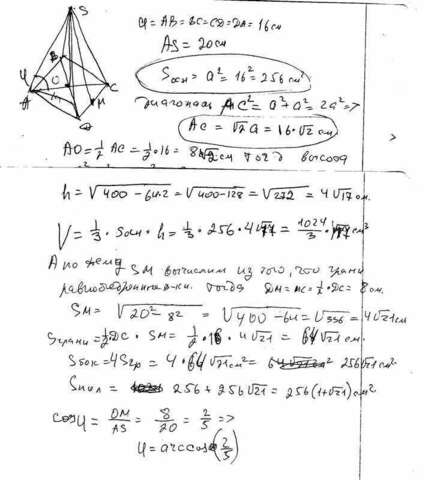 S
B
C
O
M
A
D
φ
a = AB = BC = CD = DA = 16 см
AS = 20 см
Sосн = a² = 16² = 256 см²
диагональ AC² = a² + a² = 2a² =>
AC = √2 a = 16·√2 см
AO = 1/2 AC = 1/2 · 16 = 8√2 см тогда высота
h = √400 - 64·2 = √400-128 = √272 = 4√17 см.
V = 1/3 · Sосн · h = 1/3 · 256 · 4√17 = 1024/3 · √17 см³
Апофему SM вычислим из того, что грани
равнобедренные т-ки. тогда DM = MC = 1/2 · DC = 8 см.
SM = √20² - 8² = √400 - 64 = √336 = 4√21 см
Sграни = 1/2 DC · SM = 1/2 · 16 · 4√21 = 64√21 см
Sбок = 4Sгр = 4 · 64√21 см² = 256√21 см²
Sпол = 256 + 256√21 = 256(1+√21) см²
cosφ = DM/AS = 8/20 = 2/5 =>
φ = arccos(2/5)